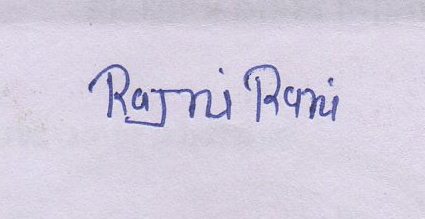 Rajni Rani